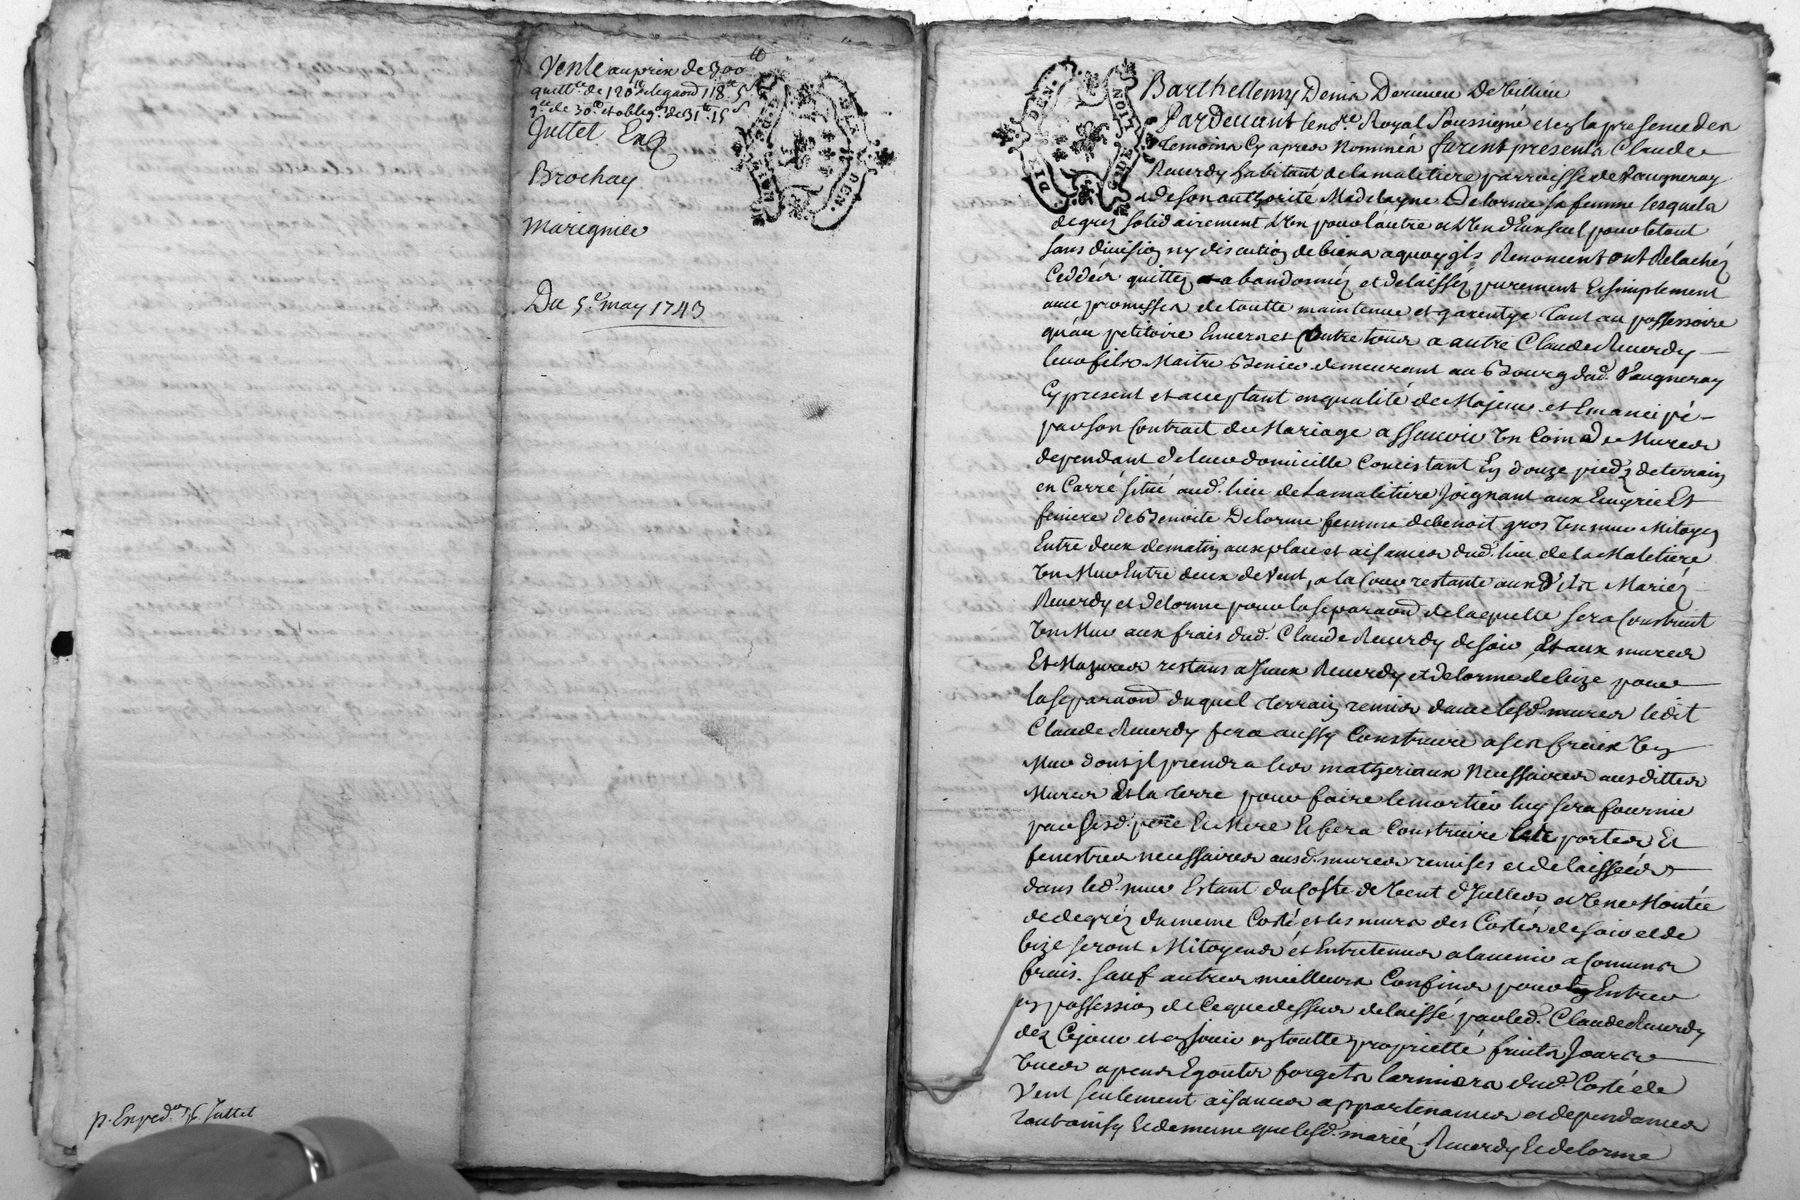 Vente au prix de 300ᵗᵗ
quitt.ᶜᵉ de 120ᵗᵗ
q.ᶜᵉ de 30ᵗᵗ et oblig.ᵒⁿ de 31ᵗᵗ 15ˢ
Juttet
Brochay
Marignier
Du 5ᵉ may 1743
p. Exped.ᵒⁿ Juttet
Barthellemy Denis
Pardevant le no.ʳᵉ Royal Soussigné et en la presence des
temoins cy apres nommés furent presents Claude
Reverdy habitant de la maletiere parroisse de Vaugneray
et de son authorité Madelayne Delorme sa femme lesquels
de grez solidairement l'Un pour l'autre et l'Un d'Eux seul pour le tout
sans division ny discution de biens a quoy ils Renoncent ont Relaché
Ceddés quitté abandonné et delaissé purement Et simplement
avec promesses de toutte maintenue et garentye tant au possessoire
qu'au petitoire Envers et Contre tous a autre Claude Reverdy
leur fils Maitre demeurant au Bourg dud. Vaugneray
Cy present et acceptant en qualité de Majeur et Emancipé
par son Contrat de Mariage assavoir Un Coin de Mures
dependant de leur domicille Concistant En douze pieds de terrain
en Carré situé aud. lieu de Lamaletiere Joignant aux Ecuyrie Et
feniere de Benoite Delorme femme de benoit gros Un mur Mitoyen
Entre deux de matin aux place et aisances dud. lieu de la Maletiere
Un Mur Entre deux de Vent, a la Cour restante auxd. Mariéz
Reverdy et Delorme pour la separaon de laquelle sera Construit
Un Mur aux frais dud. Claude Reverdy de soir, Et aux mures
Et Mazures restans a Iceux Reverdy et delorme de bize pour
la separaon duquel terrain remis dans lesd. mures ledit
Claude Reverdy fera aussy Construire a ses fraix Un
Mur dont il prendra les matheriaux Necessaires ausdittes
Mures Et la terre pour faire le mortier luy sera fournie
par sesd. pere Et Mere Et fera Construire les portes Et
fenestres necessaires ausd. mures remises et delaissées
dans led. mur Estant du Coste de Vent et Une Montée
de degréz du meme Costé et les murs des Costés de soir et de
bize seront Mitoyens et Entretenus a lavenir a Communs
frais. sauf autres meilleurs Confins pour Entrer
en possession de Ce que dessus delaissé par led. Claude Reverdy
dez Cejour et en Jouir en toutte proprietté fruits Jours
Vues Egouts forgets larmiers dud. Costé de
Vent seulement aisances appartenances et dependances
tout ainsy Et de meme que lesd. mariéz Reverdy Et delorme